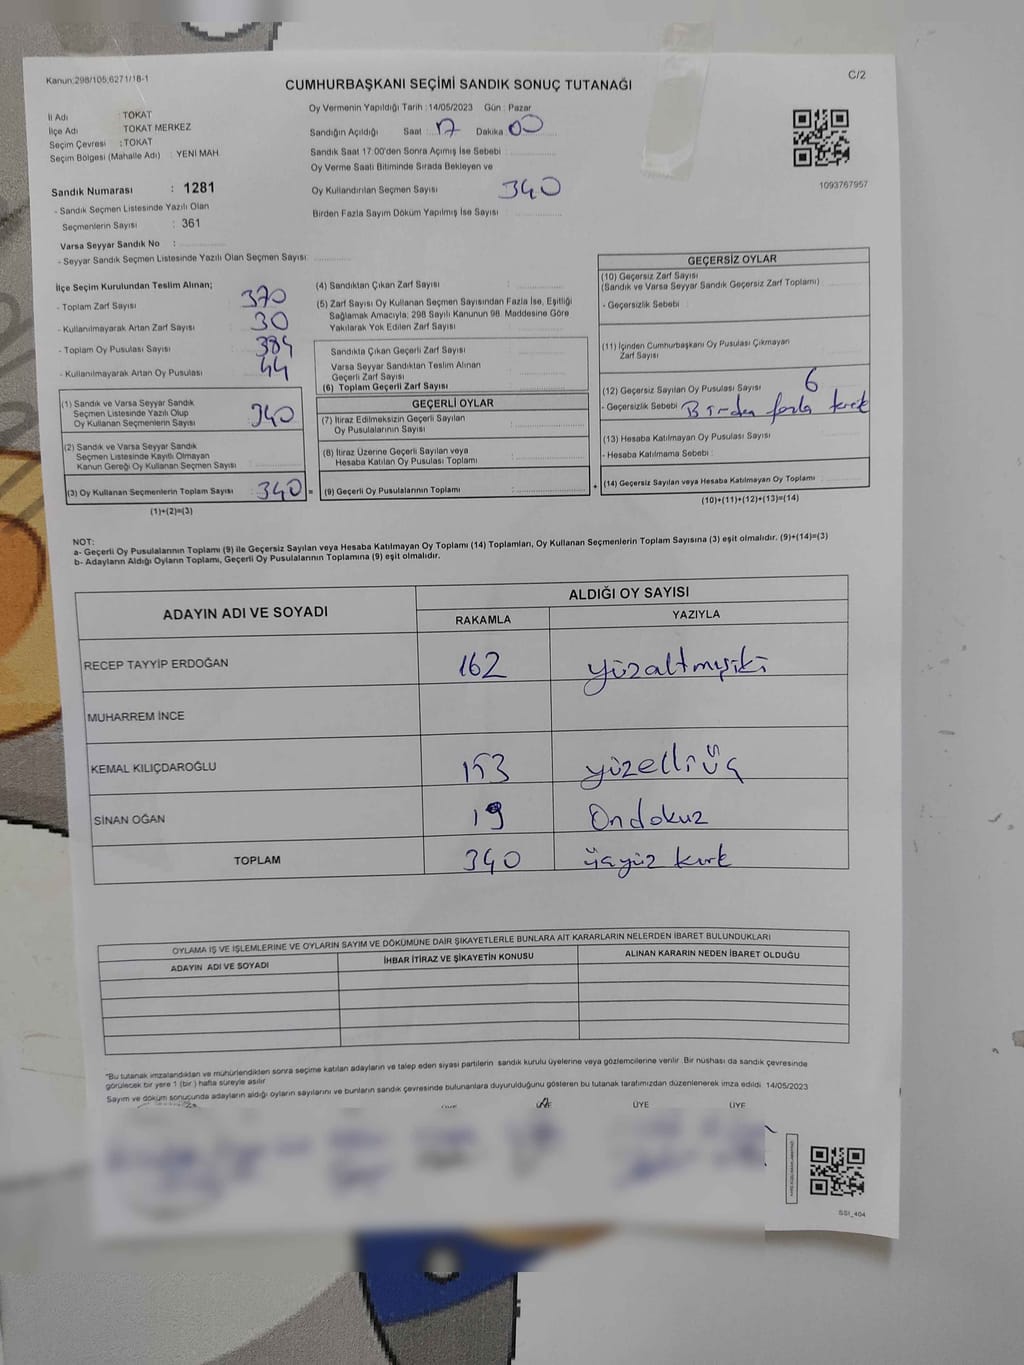 Kanun:298/105,6271/18-1
C/2
CUMHURBAŞKANI SEÇİMİ SANDIK SONUÇ TUTANAĞI
İl Adı TOKAT
İlçe Adı TOKAT MERKEZ
Seçim Çevresi : TOKAT
Seçim Bölgesi (Mahalle Adı) : YENİ MAH.
Sandık Numarası : 1281
- Sandık Seçmen Listesinde Yazılı Olan
Seçmenlerin Sayısı : 361
Varsa Seyyar Sandık No :
- Seyyar Sandık Seçmen Listesinde Yazılı Olan Seçmen Sayısı:
Oy Vermenin Yapıldığı Tarih : 14/05/2023 Gün : Pazar
Sandığın Açıldığı Saat : 17 Dakika 00
Sandık Saat 17:00'den Sonra Açımış İse Sebebi :
Oy Verme Saati Bitiminde Sırada Bekleyen ve
Oy Kullandırılan Seçmen Sayısı 340
Birden Fazla Sayım Döküm Yapılmış İse Sayısı
1093767957
İlçe Seçim Kurulundan Teslim Alınan;
- Toplam Zarf Sayısı 370
- Kullanılmayarak Artan Zarf Sayısı 30
- Toplam Oy Pusulası Sayısı 384
- Kullanılmayarak Artan Oy Pusulası 44
(1) Sandık ve Varsa Seyyar Sandık
Seçmen Listesinde Yazılı Olup
Oy Kullanan Seçmenlerin Sayısı : 340
(2) Sandık ve Varsa Seyyar Sandık
Seçmen Listesinde Kayıtlı Olmayan
Kanun Gereği Oy Kullanan Seçmen Sayısı :
(3) Oy Kullanan Seçmenlerin Toplam Sayısı : 340 =
(1)+(2)=(3)
(4) Sandıktan Çıkan Zarf Sayısı :
(5) Zarf Sayısı Oy Kullanan Seçmen Sayısından Fazla İse, Eşitliği
Sağlamak Amacıyla; 298 Sayılı Kanunun 98. Maddesine Göre
Yakılarak Yok Edilen Zarf Sayısı :
Sandıkta Çıkan Geçerli Zarf Sayısı :
Varsa Seyyar Sandıktan Teslim Alınan
Geçerli Zarf Sayısı :
(6) Toplam Geçerli Zarf Sayısı :
GEÇERLİ OYLAR
(7) İtiraz Edilmeksizin Geçerli Sayılan
Oy Pusulalarının Sayısı :
(8) İtiraz Üzerine Geçerli Sayılan veya
Hesaba Katılan Oy Pusulası Toplamı :
(9) Geçerli Oy Pusulalarının Toplamı : +
GEÇERSİZ OYLAR
(10) Geçersiz Zarf Sayısı
(Sandık ve Varsa Seyyar Sandık Geçersiz Zarf Toplamı) :
- Geçersizlik Sebebi :
(11) İçinden Cumhurbaşkanı Oy Pusulası Çıkmayan
Zarf Sayısı :
(12) Geçersiz Sayılan Oy Pusulası Sayısı 6
- Geçersizlik Sebebi Birden fazla tercih
(13) Hesaba Katılmayan Oy Pusulası Sayısı :
- Hesaba Katılmama Sebebi :
(14) Geçersiz Sayılan veya Hesaba Katılmayan Oy Toplamı :
(10)+(11)+(12)+(13)=(14)
NOT:
a- Geçerli Oy Pusulalarının Toplamı (9) ile Geçersiz Sayılan veya Hesaba Katılmayan Oy Toplamı (14) Toplamları, Oy Kullanan Seçmenlerin Toplam Sayısına (3) eşit olmalıdır. (9)+(14)=(3)
b- Adayların Aldığı Oyların Toplamı, Geçerli Oy Pusulalarının Toplamına (9) eşit olmalıdır.
ADAYIN ADI VE SOYADI
ALDIĞI OY SAYISI
RAKAMLA YAZIYLA
RECEP TAYYİP ERDOĞAN 162 yüzaltmışiki
MUHARREM İNCE
KEMAL KILIÇDAROĞLU 153 yüzelliüç
SİNAN OĞAN 19 Ondokuz
TOPLAM 340 üçyüz kırk
OYLAMA İŞ VE İŞLEMLERİNE VE OYLARIN SAYIM VE DÖKÜMÜNE DAİR ŞİKAYETLERLE BUNLARA AİT KARARLARIN NELERDEN İBARET BULUNDUKLARI
ADAYIN ADI VE SOYADI İHBAR İTİRAZ VE ŞİKAYETİN KONUSU ALINAN KARARIN NEDEN İBARET OLDUĞU
*Bu tutanak imzalandıktan ve mühürlendikten sonra seçime katılan adayların ve talep eden siyasi partilerin sandık kurulu üyelerine veya gözlemcilerine verilir. Bir nüshası da sandık çevresinde
görülecek bir yere 1 (bir ) hafta süreyle asılır
Sayım ve döküm sonucunda adayların aldığı oyların sayılarını ve bunların sandık çevresinde bulunanlara duyurulduğunu gösteren bu tutanak tarafımızdan düzenlenerek imza edildi. 14/05/2023
ÜYE ÜYE ÜYE ÜYE
SSI_404